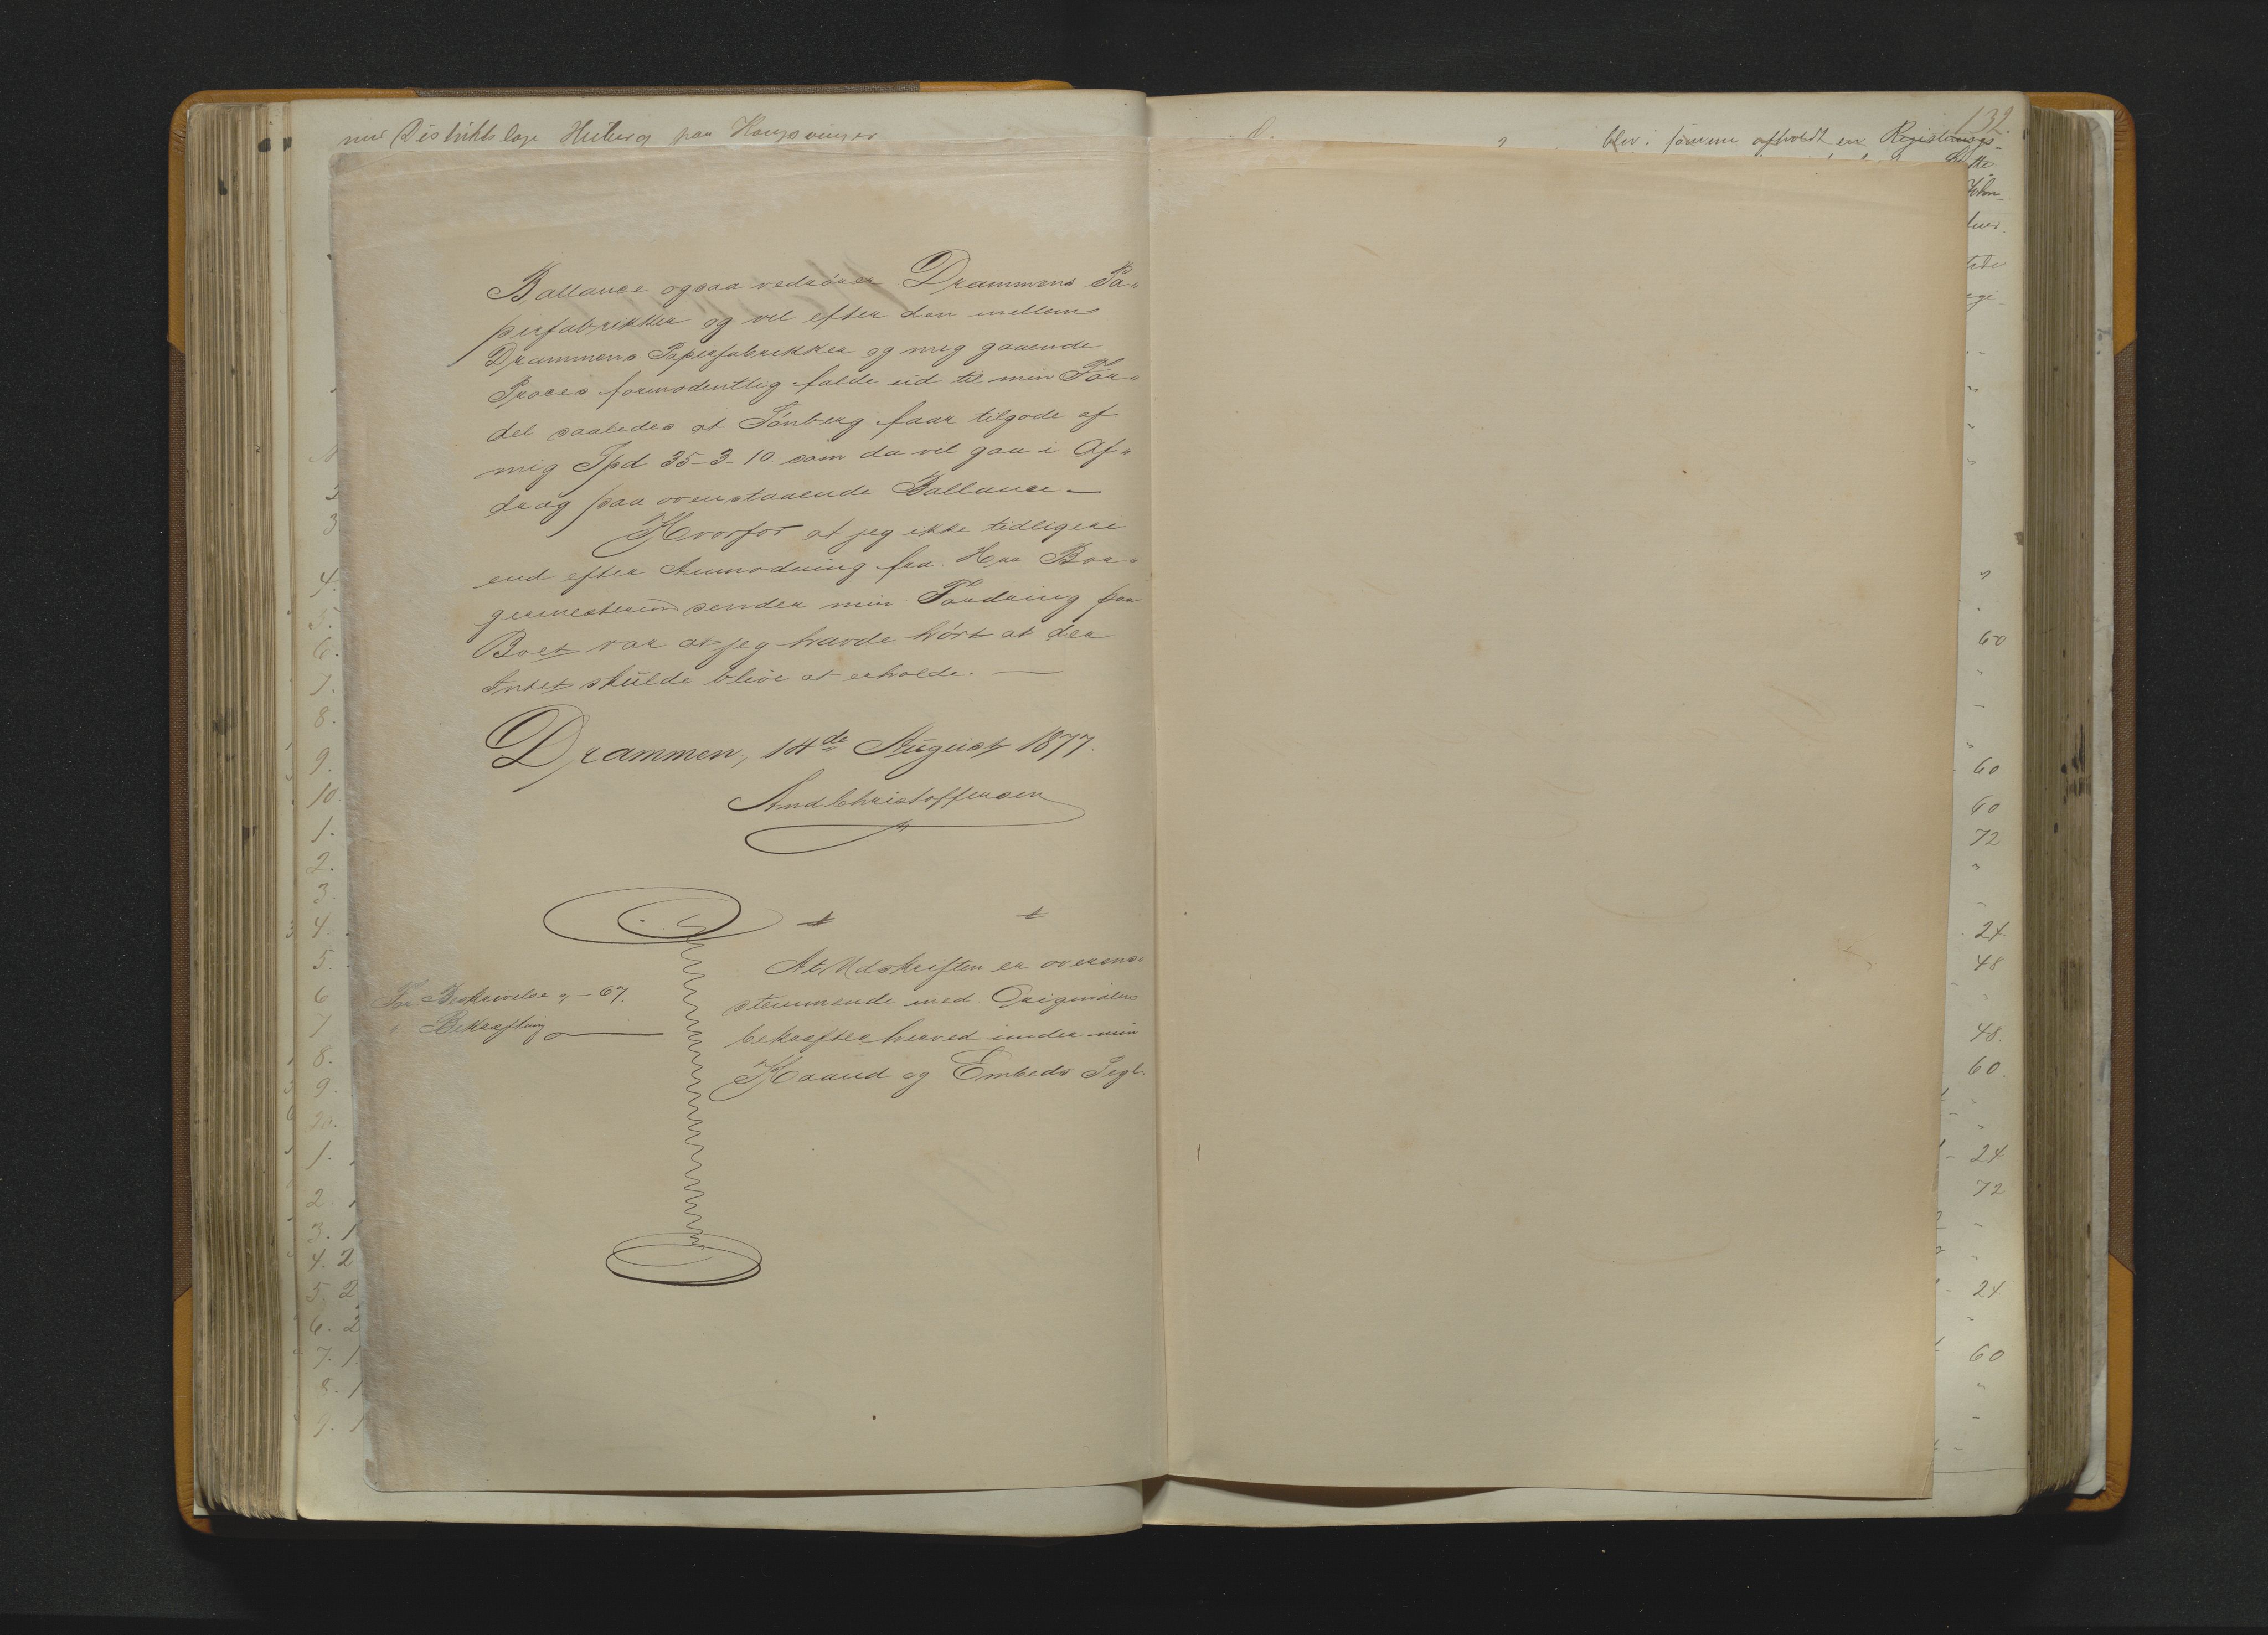 med Distriktslæge Huberg paa Kongsvinger
132.
blev i samme afholdt en Registerings-
Ballance ogsaa vedrører Drammens Pa„
pirfabrikker og vil efter den mellem
Drammens Papirfabrikker og mig gaaende
Proces formodentlig falde ud til min For„
del saaledes at Sönberg faar tilgode af
mig Spd 35-3-10 som da vil gaa i Af„
drag paa ovenstaaende Ballance —
Hvorfor at jeg ikke tidligere
end efter Anmodning fra Hrr Bor„
germesteren sender min Fordring paa
Boet var at jeg havde hört at der
Intet skulde blive at erholde. —
Drammen, 14de August 1877.
And Christoffersen
At Udskriften er overens„
stemmende med Originalen
bekræftes herved under min
Haand og Embeds Segl.
For Beskrivelse „ - 67.
" Bekræftning —
4.
5.
6.
7.
8.
9.
10.
1.
2.
3.
4.
5.
6
7
8.
9.
20.
1.
2. 1
3. 1
4. 2
5. 2
6. 2
7. 1
8. 1
9. 1
60
60
60
72
24
48
48.
60.
24
72
24
60